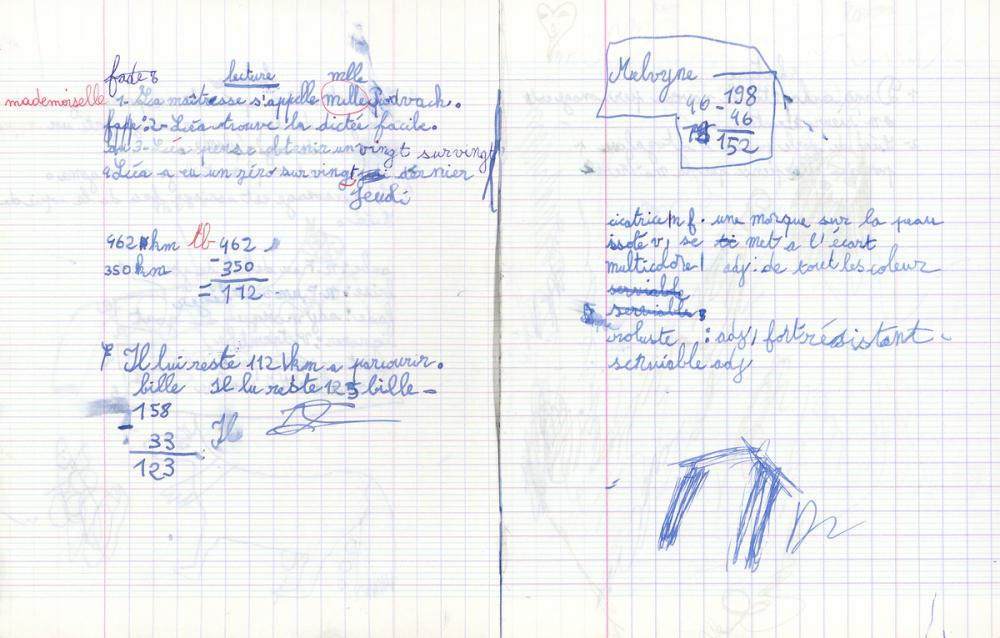 lecture
mlle
mademoiselle 1- Léa maîtresse s'appelle mille Rodvach.
2- Léa trouve la dictée facile.
3- Léa pense obtenir un vingt sur vingt
4 Léa a eu un zéro sur vingt dernier
Jeudi
962 km tb 462
350 km - 350
= 112
Il lui reste 112 km a parcourir.
bille Il lu reste 125 bille -
158
- 33
Il
123
Melvyne
198
46 - 46
152
cicatrice n f. une marque sur la peau
isolé v, se met a l'écart
multicolore adj. de tout les couleur
serviable
serviable
robuste : adj, fort résistant
serviable adj